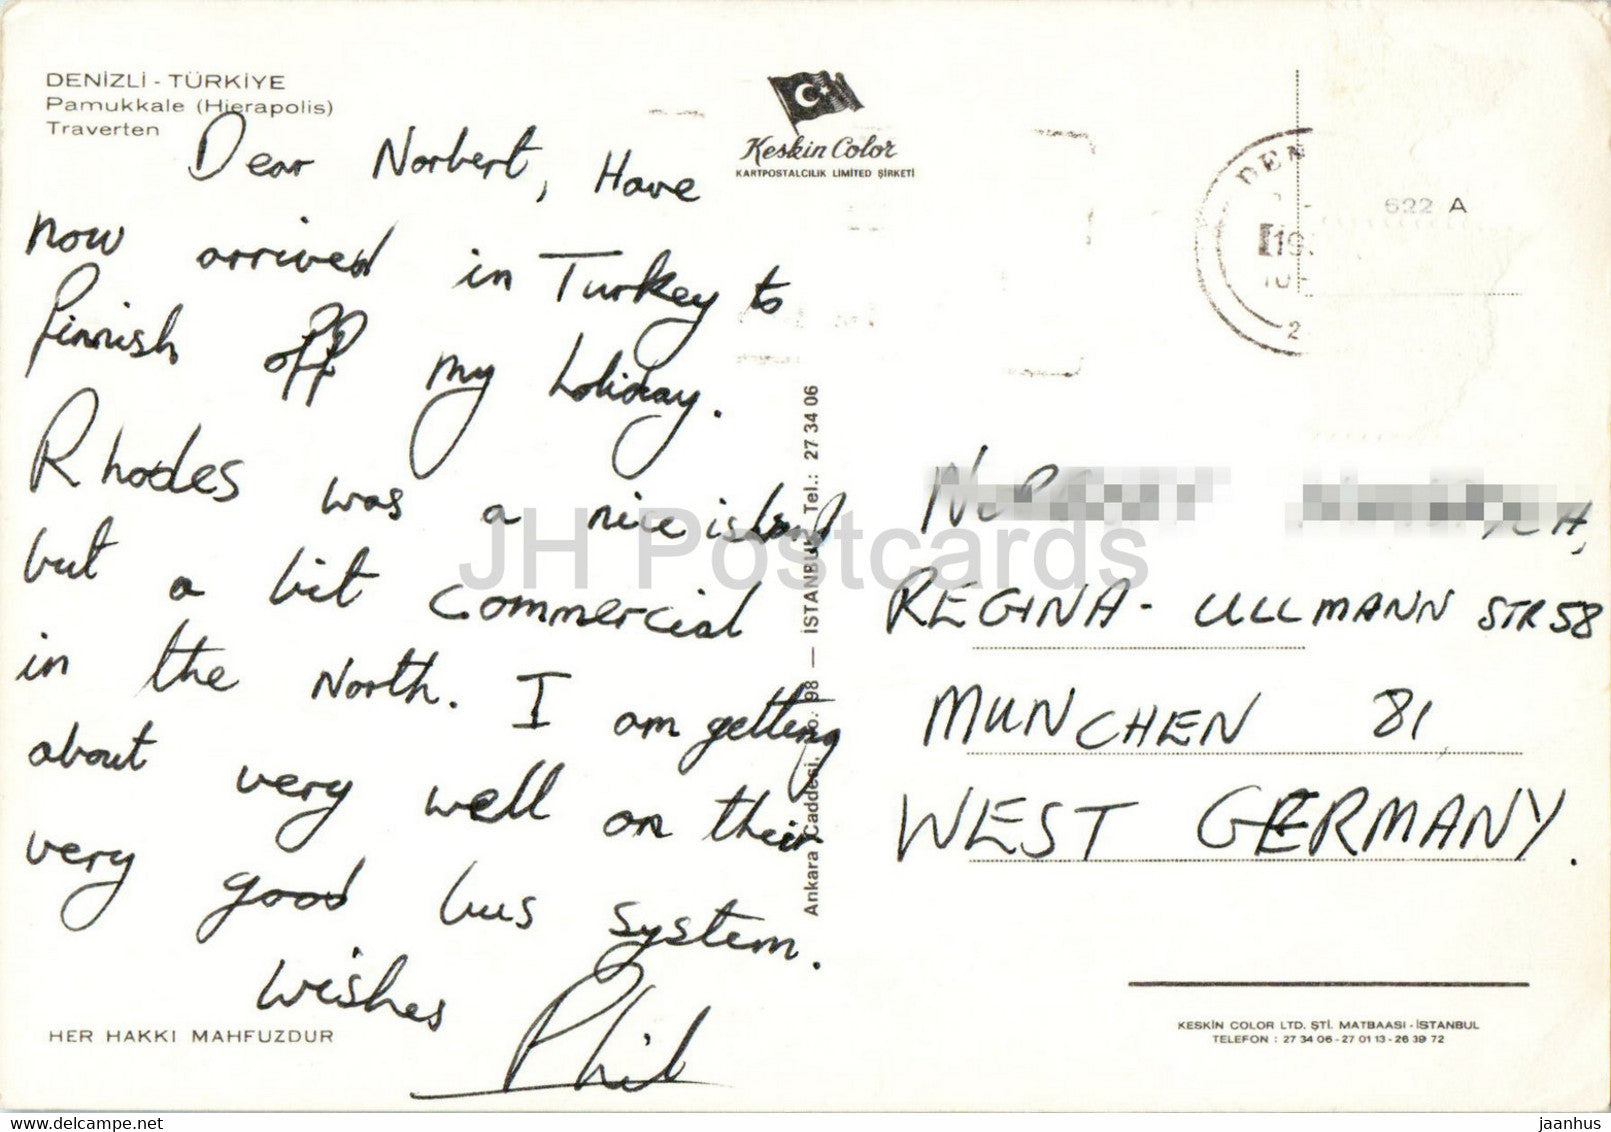 DENİZLİ - TÜRKİYE
Pamukkale (Hierapolis)
Traverten
Dear Norbert, Have
now arrived in Turkey to
finnish off my holiday.
Rhodes was a nice island
but a bit commercial
in the North. I am getting
about very well on their
very good bus system.
wishes
Phil
HER HAKKI MAHFUZDUR
Keskin Color
KARTPOSTALCILIK LIMITED ŞİRKETİ
Ankara Caddesi, No.: 98 — İSTANBUL Tel.: 27 34 06
DEN
622 A
REGINA - ULLMANN STR 58
MUNCHEN 81,
WEST GERMANY.
KESKİN COLOR LTD. ŞTİ. MATBAASI - İSTANBUL
TELEFON : 27 34 06 - 27 01 13 - 26 39 72
JH Postcards
delcampe.net
jaanhus